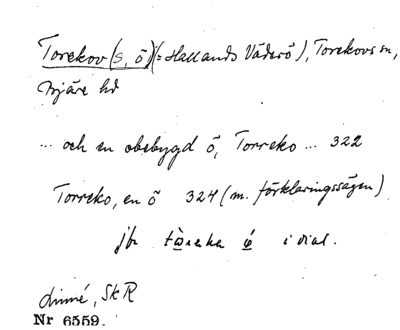 Torekov (s, ö) (= Hallands Väderö), Torekovs sn,
Bjäre hd
... och en obebygd ö, Torreko ... 322
Torreko, en ö 324 (m. förklaringssägen)
jfr i dial.
Linné, SkR
Nr 6559.